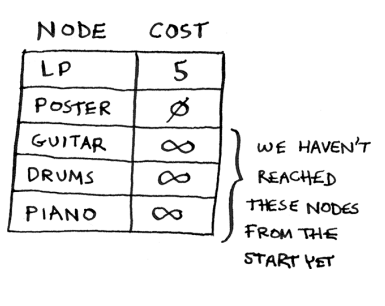 NODE COST
LP 5
POSTER Ø
GUITAR ∞
DRUMS ∞
PIANO ∞
WE HAVEN'T
REACHED
THESE NODES
FROM THE
START YET